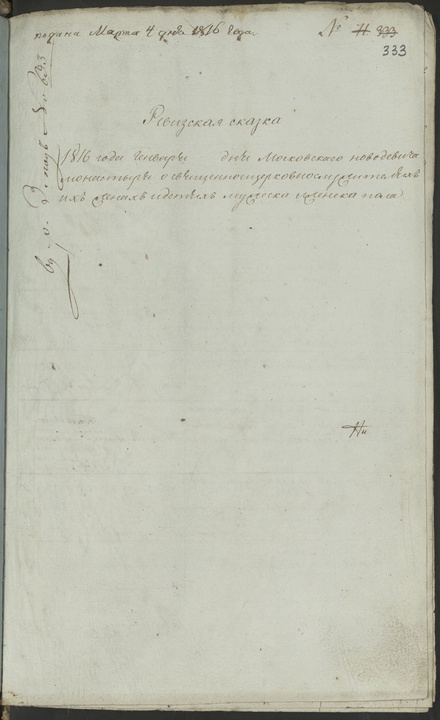 подана Марта 4 дня 1816 года.
№ 11 333
333
Ревизская сказка
1816 года генваря дня Московскаго новодевича
монастыря о священноцерковнослужителяхъ
ихъ женахъ и детяхъ мужеска и женска пола